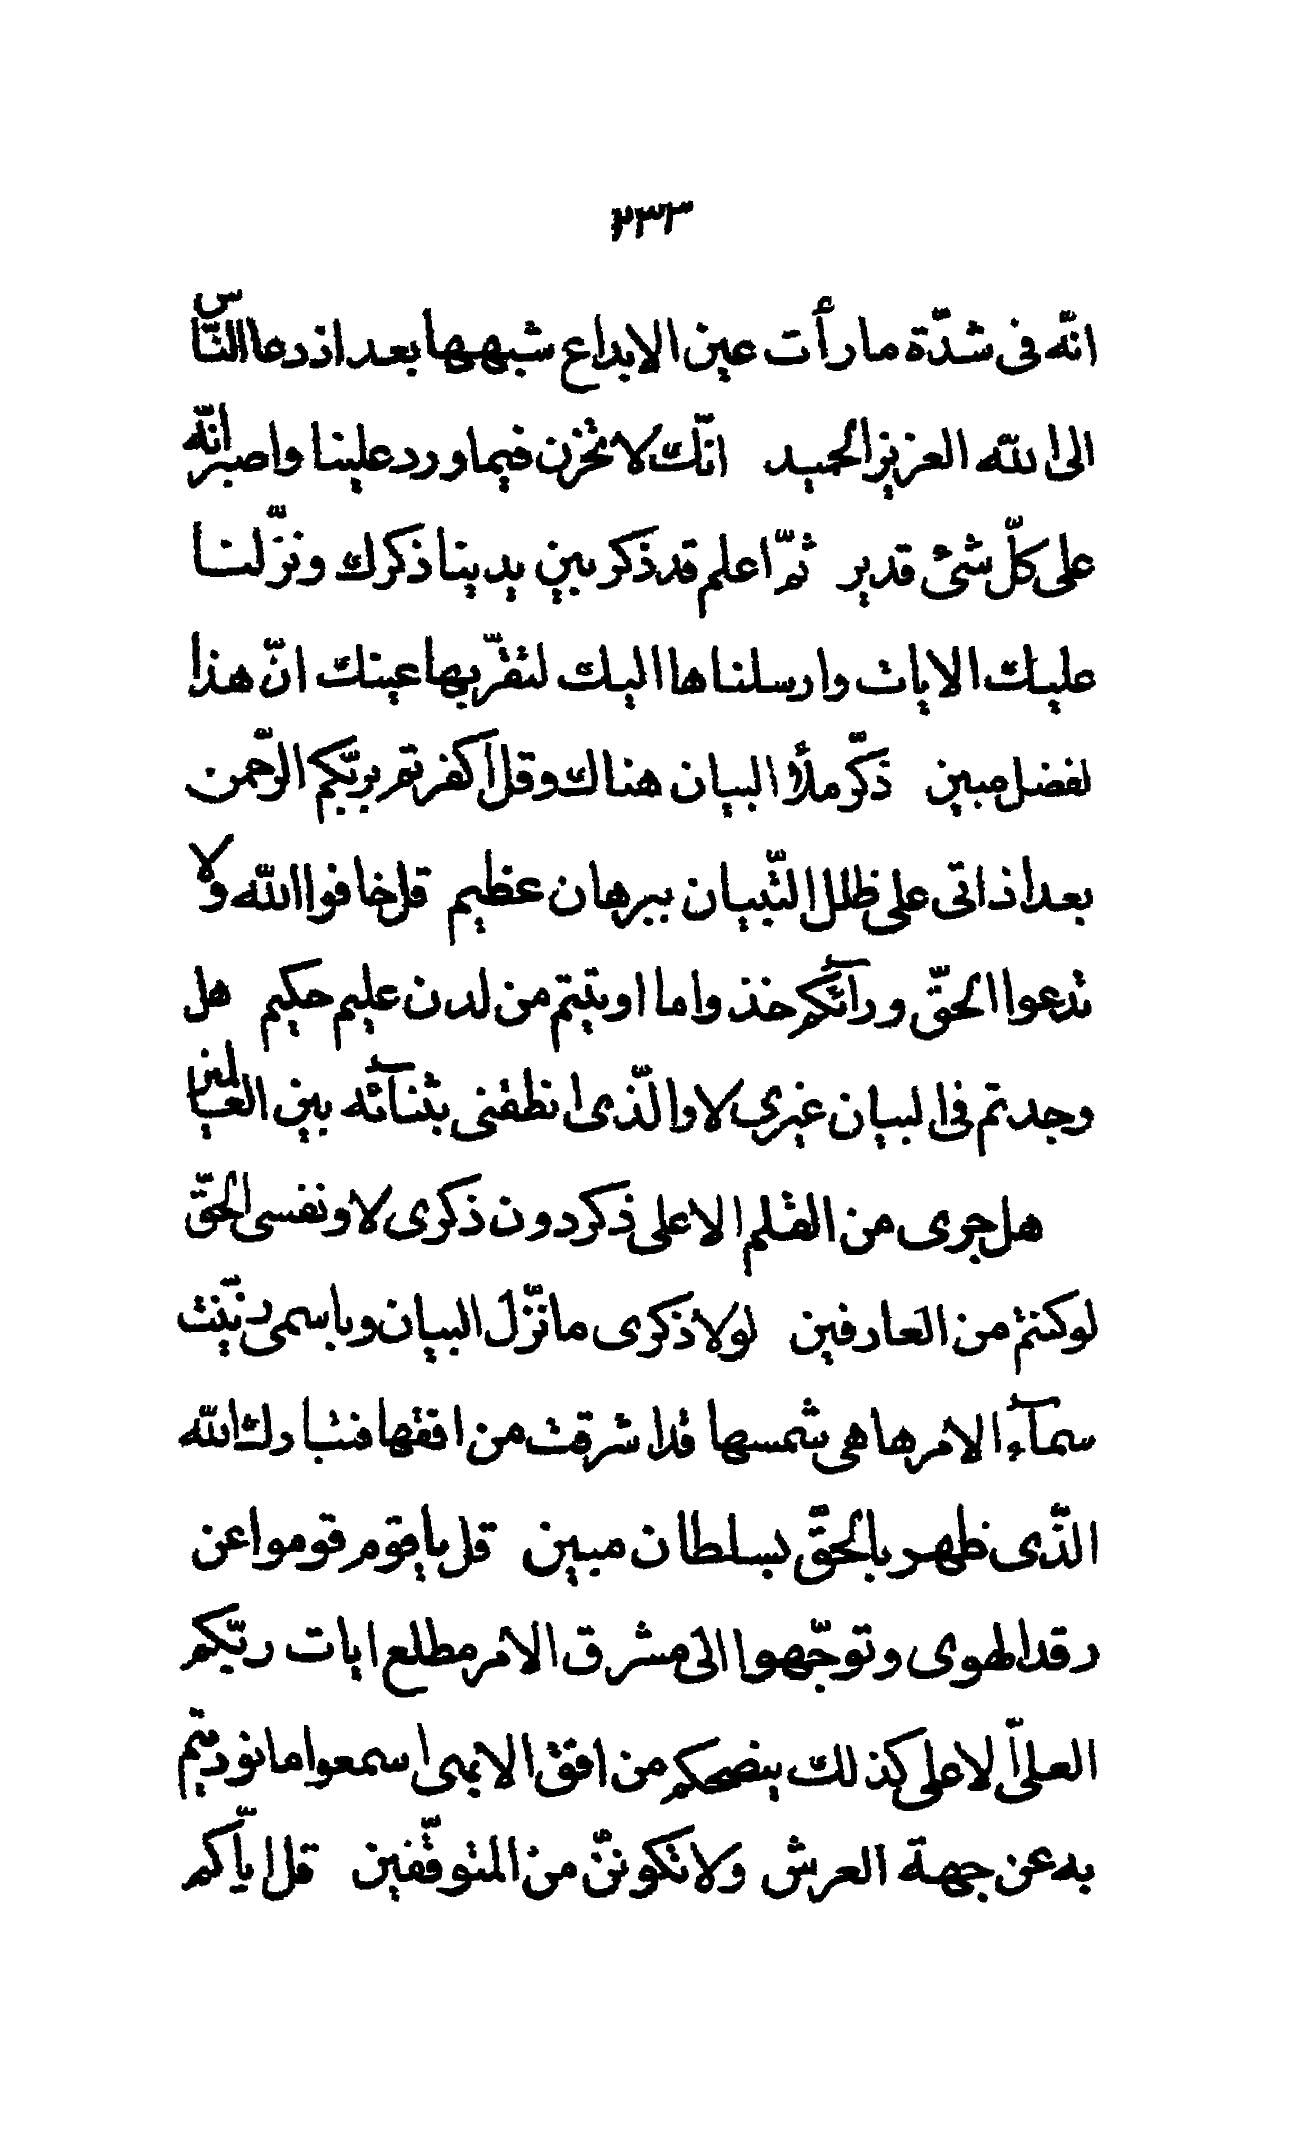 ٢٣٣
انّه فى شدّة ما رأت عين الابداع شبهها بعد اذ دعا النّاس
الى الله العزيز الحميد انّك لا تحزن فيما ورد علينا واصبر انّه
على كلّ شئ قدير ثمّ اعلم قد ذكر بين يدينا ذكرك ونزّلنا
عليك الايات وارسلناها اليك لتقرّ بها عينك انّ هذا
لفضل مبين ذكّر ملأ البيان هناك وقل أكفرتم بربّكم الرّحمن
بعد اذ اتى على ظلل التّبيان ببرهان عظيم قل خافوا الله ولا
تدعوا الحقّ ورآئكم خذوا ما اوتيتم من لدن عليم حكيم هل
وجدتم فى البيان غيرى لا والّذى انطقنى بثنآئه بين العالمين
هل جرى من القلم الاعلى ذكر دون ذكرى لا ونفسى الحقّ
لو كنتم من العارفين لولا ذكرى ما نزّل البيان وباسمى زيّنت
سمآء الامر ها هى شمسها قد اشرقت من افقها فتبارك الله
الّذى ظهر بالحقّ بسلطان مبين قل يا قوم قوموا عن
رقد الهوى وتوجّهوا الى مشرق الامر مطلع ايات ربّكم
العلىّ الاعلى كذلك ينصحكم من افق الابهى اسمعوا ما نوديتم
به عن جهة العرش ولا تكوننّ من المتوقّفين قل ايّاكم